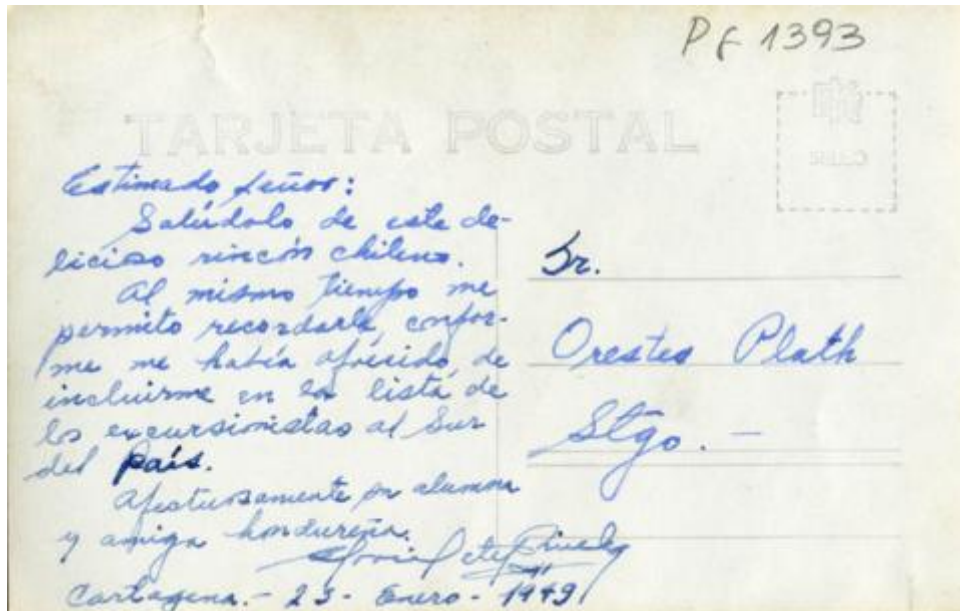 PF 1393
TARJETA POSTAL
SELLO
Estimado Señor:
Salúdolo de este de-
licioso rincón chileno.
Al mismo tiempo me
permito recordarle, confor-
me me había ofrecido, de
incluirme en la lista de
los excursionistas al Sur
del País.
Afectuosamente su alumna
y amiga hondureña.
Cartagena.- 23- Enero - 1949
Sr.
Orestes Plath
Stgo. -